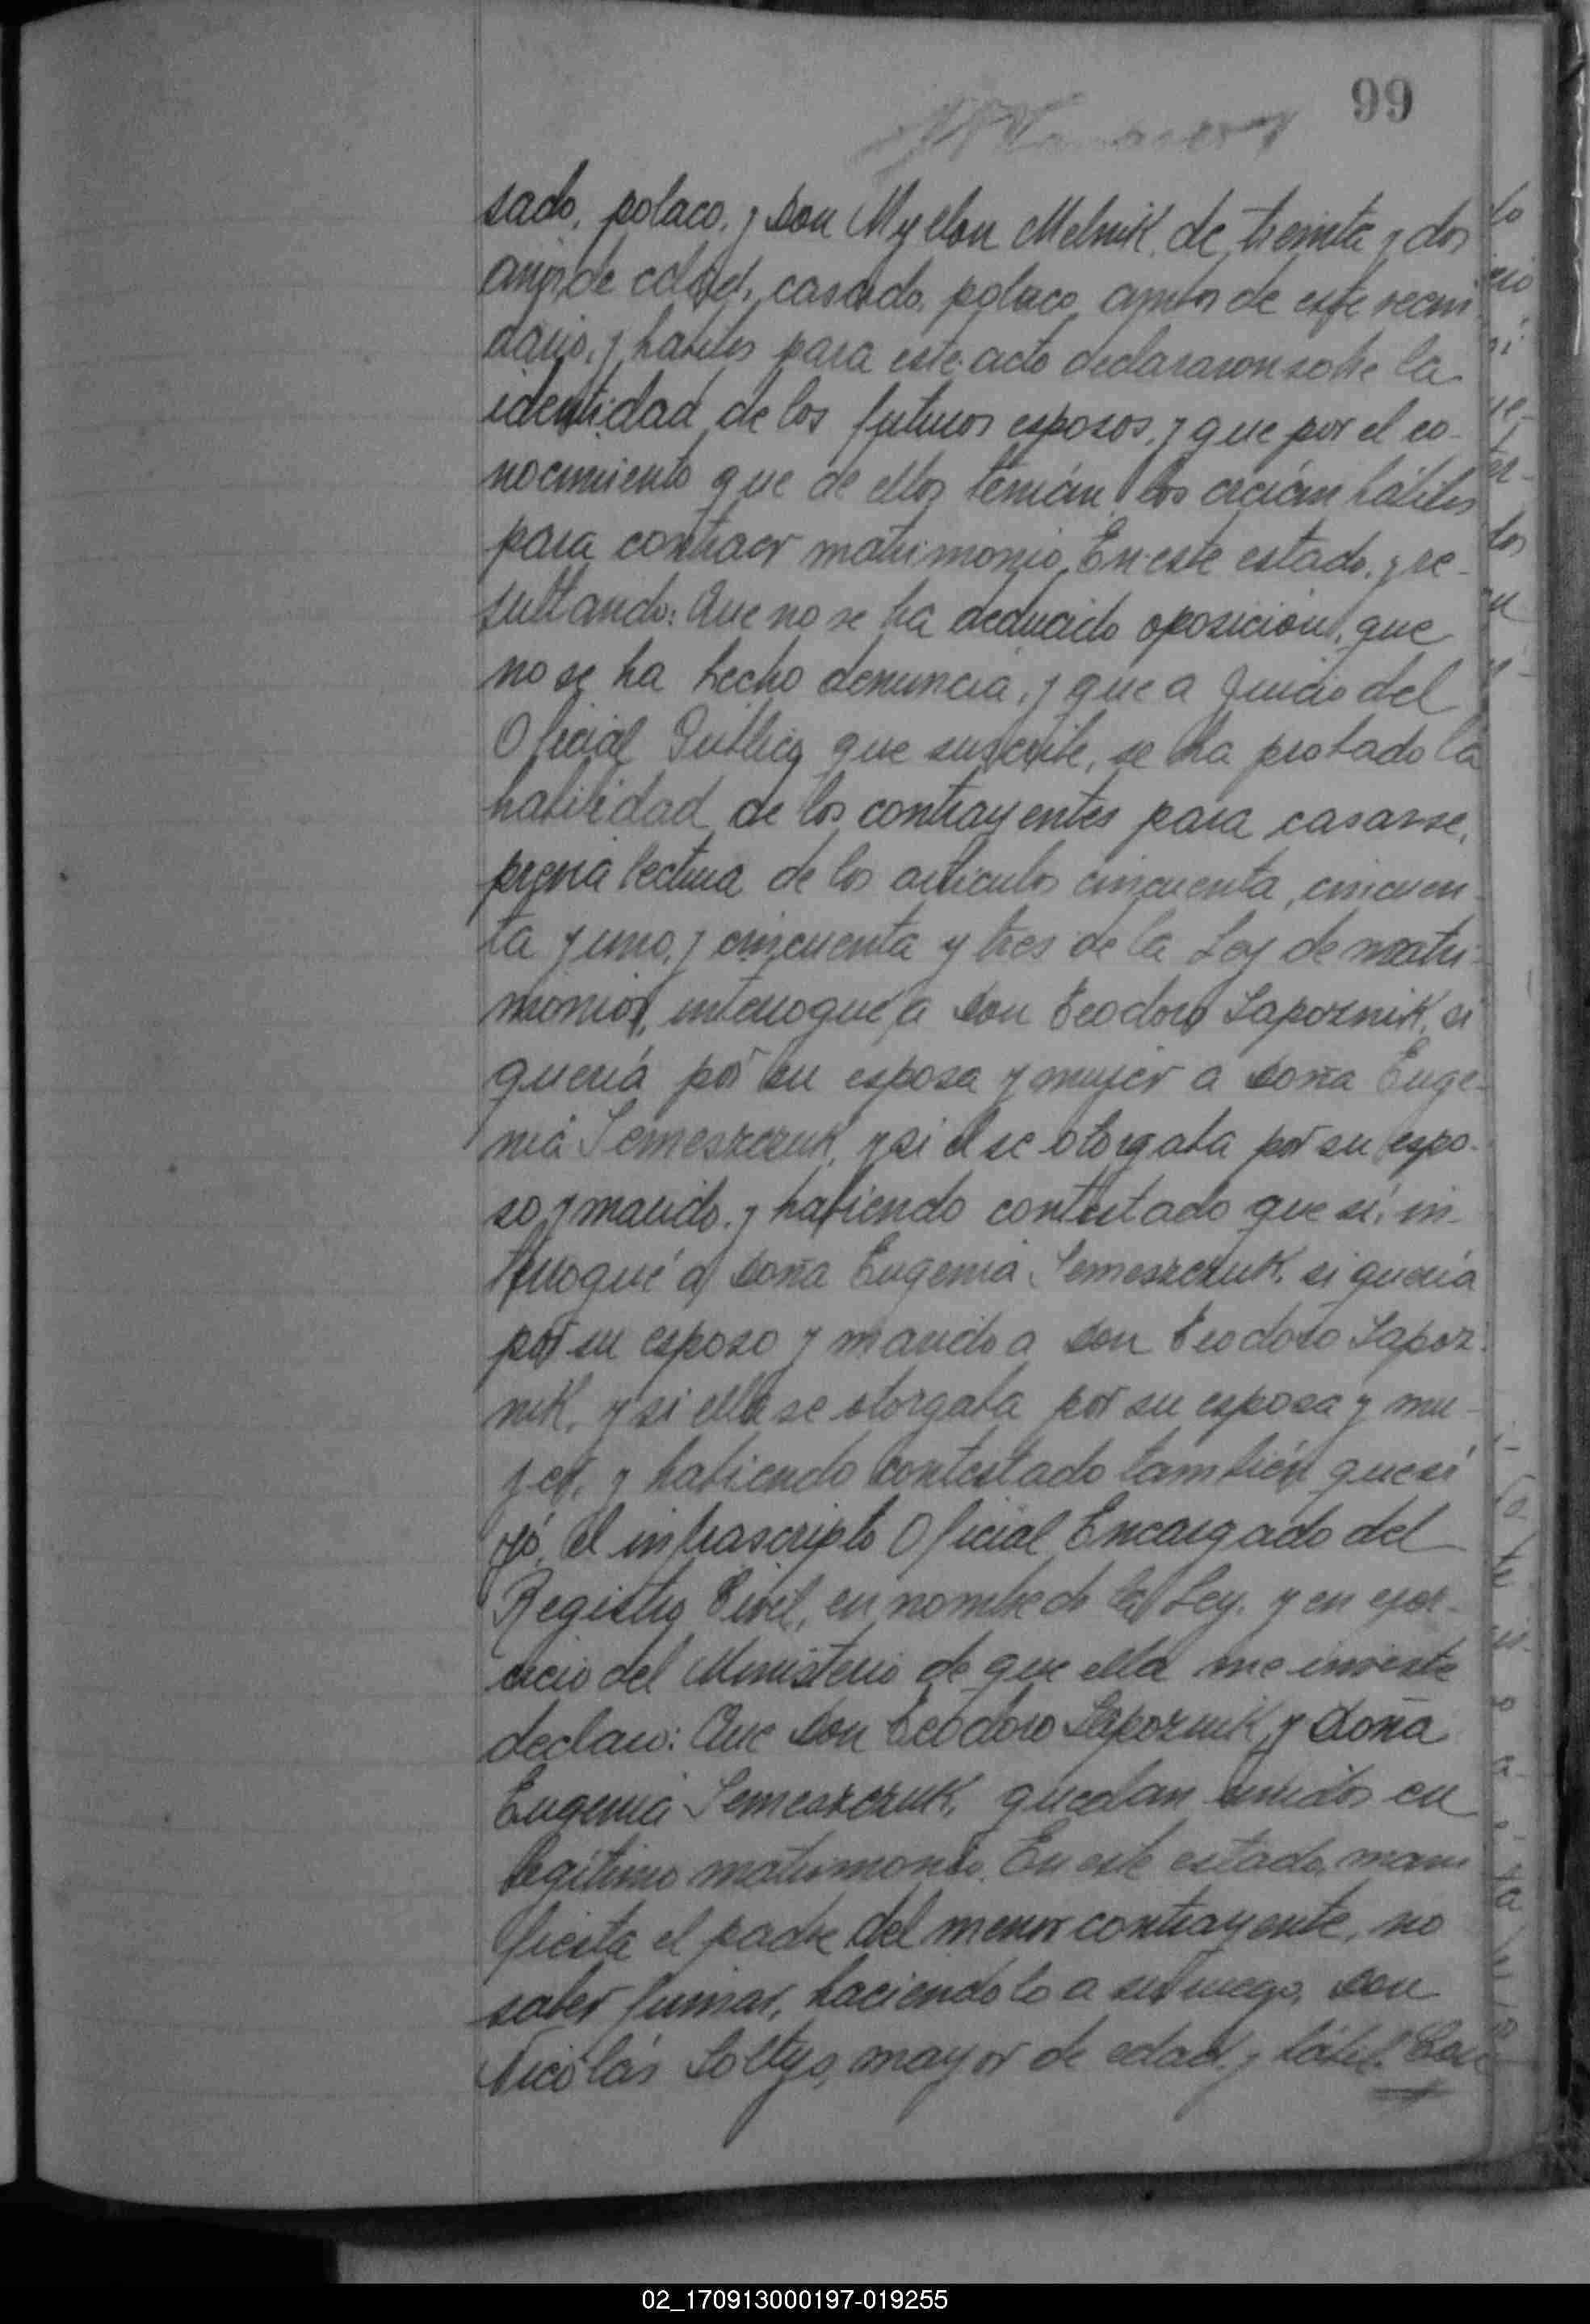 99
sado, polaco, y Don Myllon Melnik, de treinta y dos
años de edad, casado, polaco, ambos de este vecin
dario, y habiles para este acto declararon sobre la
identidad de los futuros esposos, y que por el co-
nocimiento que de ellos tenián, los creián hábiles
para contraer matrimonio. En este estado, y re-
sultando: Que no se ha deducido oposición, que
no se ha hecho denuncia, y que a juicio del
Oficial Público que suscribe, se ha probado la
habilidad de los contrayentes para casarse,
previa lectura de los artículos cincuenta, cincuen-
ta y uno, y cincuenta y tres de la Ley de matri-
monios, interrogué a Don Teodoro Sapoznik, si
queriá por su esposa y mujer a Doña Euge-
nia Semeszczuk, y si el se otorgaba por su espo-
so y marido, y habiendo contestado que sí, in-
terrogué a Doña Eugenia Semeszczuk, si quería
por su esposo y marido a Don Teodoro Sapoz-
nik, y si ella se otorgaba por su esposa y mu-
jer, y habiendo contestado también que sí
yó, el infrascripto Oficial Encargado del
Registro Civil, en nombre de la Ley, y en ejer-
cicio del Ministerio de que ella me inviste
declaro: Que Don Teodoro Sapoznik, y Doña
Eugenia Semeszczuk, quedan unidos en
legítimo matrimonio. En este estado, mani
fiesta el padre del menor contrayente, no
saber firmar, haciendolo a su ruego, Don
Nicolás Soltys, mayor de edad, y hábil.
02_170913000197-019255